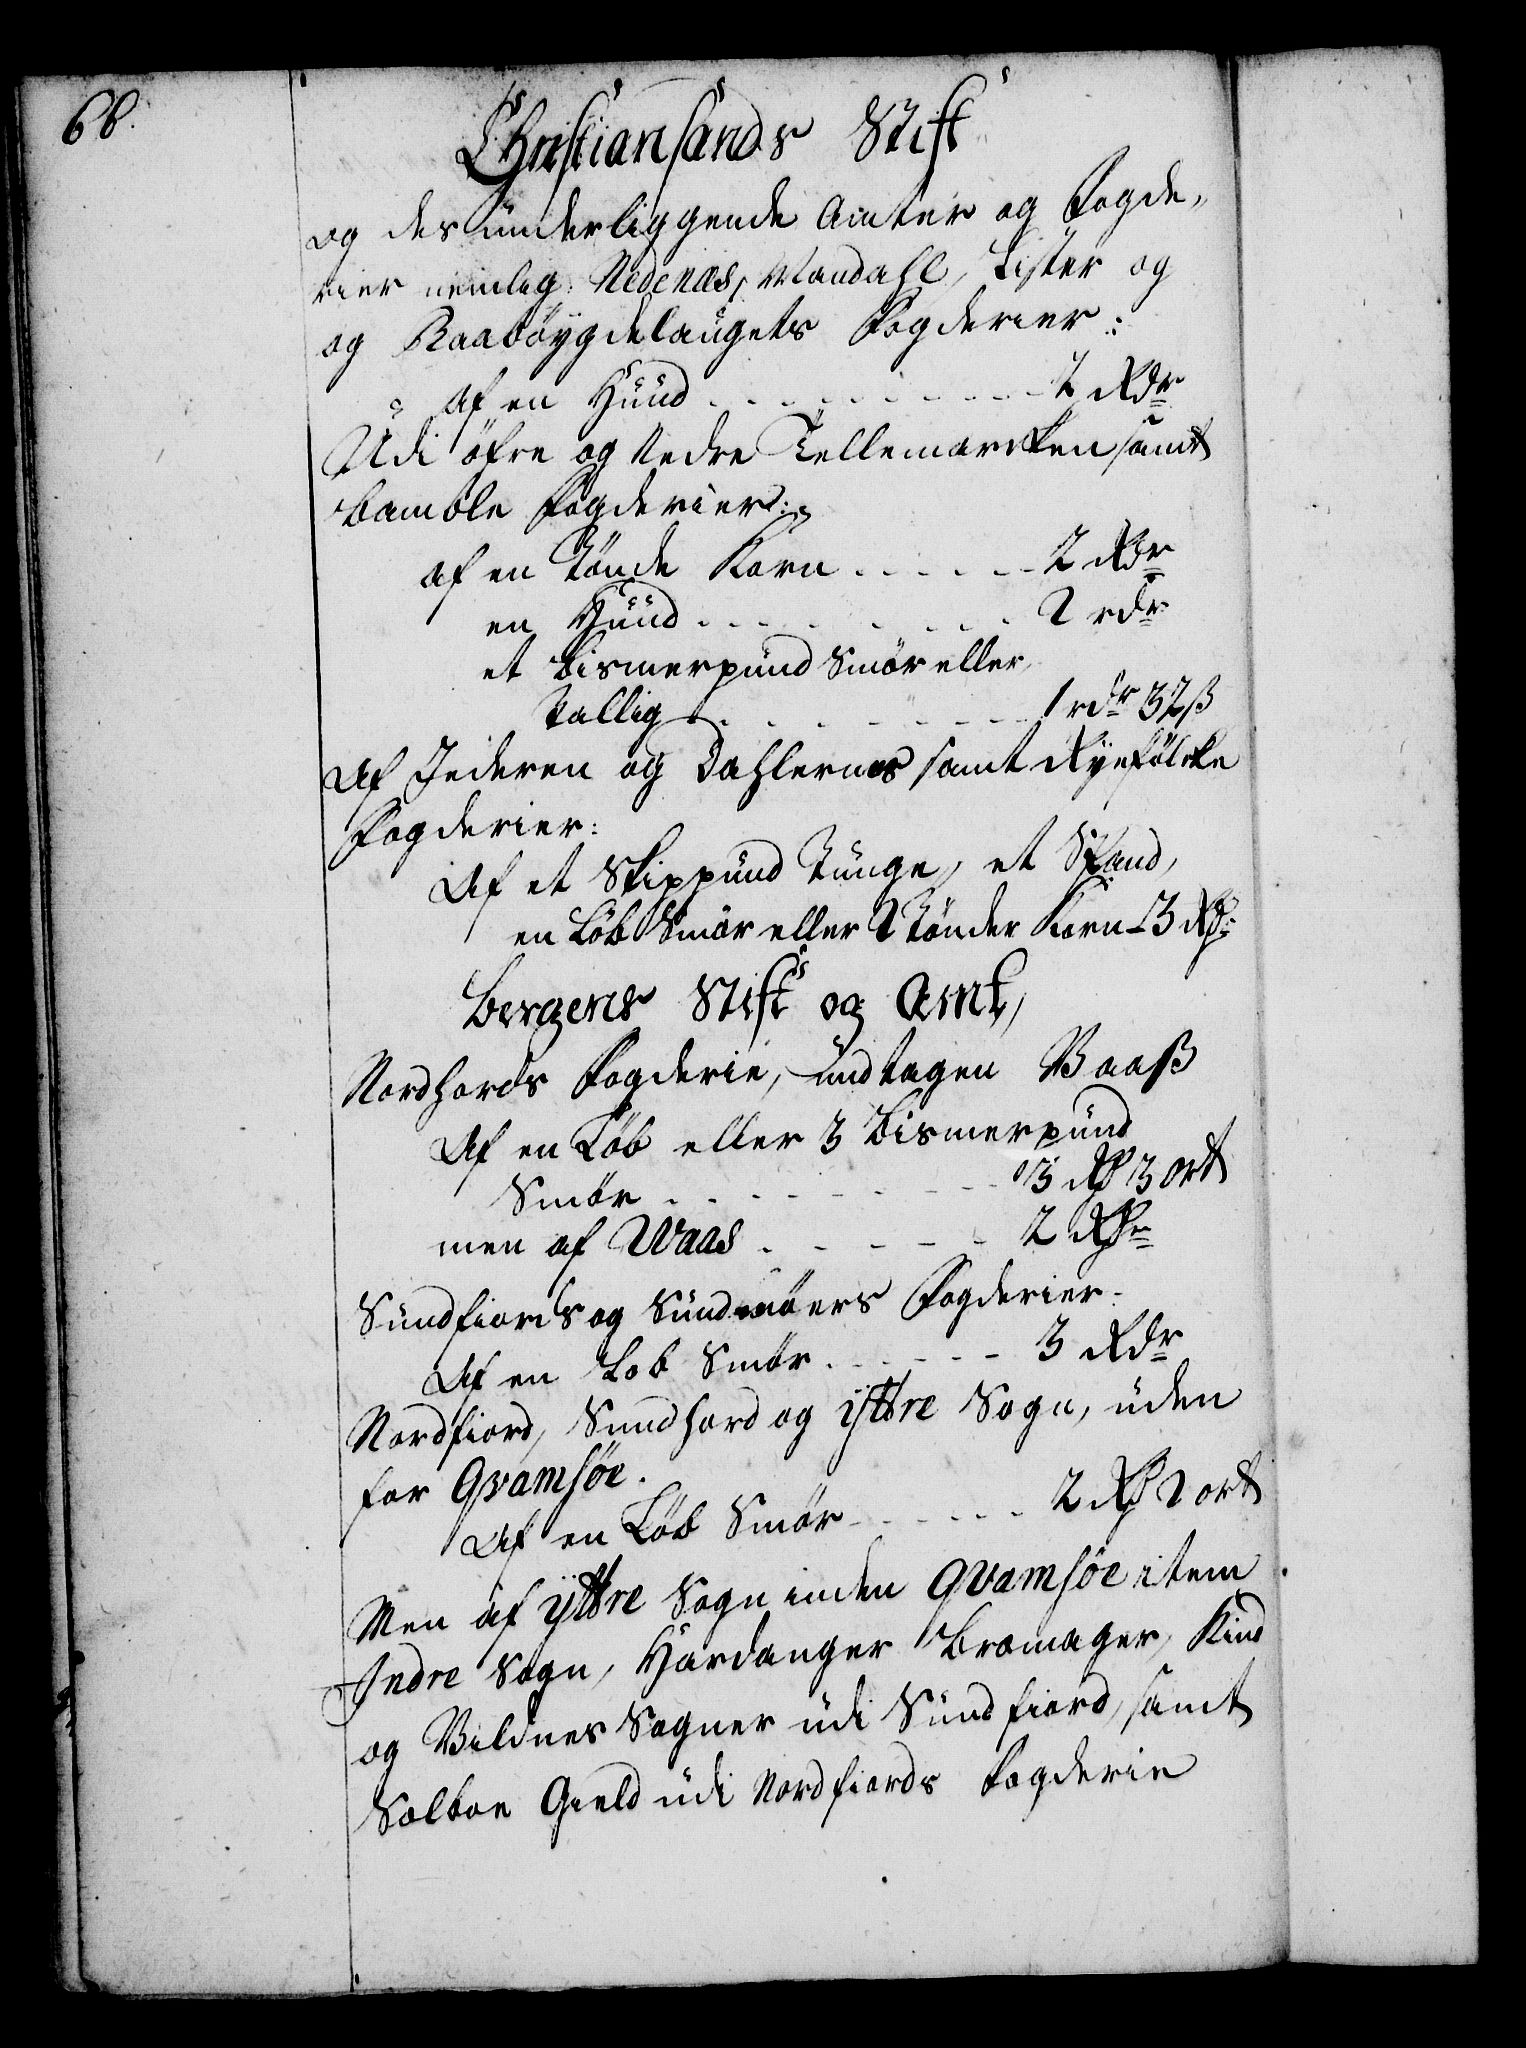 68.
Christiansands Stift
og des underliggende Amter og Fogde,
rier nemlig: Nedenæs, Mandahl, Lister og
og Raabøygdelaugets Fogderier:
af en Huud . . . . . . . . . 2 Rdr
Udi öfre og Nedre Tellemarcken samt
bamble Fogderier:
af en Tönde Korn . . . . . 2 Rdr
en Huud . . . . . . . . 2 rdr
et bismerpund Smör eller
Tallig . . . . . . . . 1 rdr 32 ß
Af Jederen og Dahlernes samt Ryefölcke
Fogderier:
Af et Skippund Tunge, et Spand,
en Löb Smör eller 2 Tönder Korn 3 Rd:
Bergens Stift og Amt,
Nordhords Fogderie, undtagen Vaaß
Af en Löb eller 3 bismerpund
Smör . . . . . . . . 3 Rd 3 ort
men af Waas . . . . . 2 Rdr
Sundfiords og Sundmöers Fogderier:
Af en Löb Smör . . . . . 3 Rdr
Nordfiord, Sundhord og ÿttre Sogn, uden
for Qvamsöe.
Af en Löb Smör . . . . . 2 Rd 2 ort
Men af ÿttre Sogn inden Qvamsöe item
Indre Sogn, Hardanger Bremager, Kind
og Vildnes Sogner udi Sundfiord, samt
Selboe Gield udi Nordfiords Fogderie